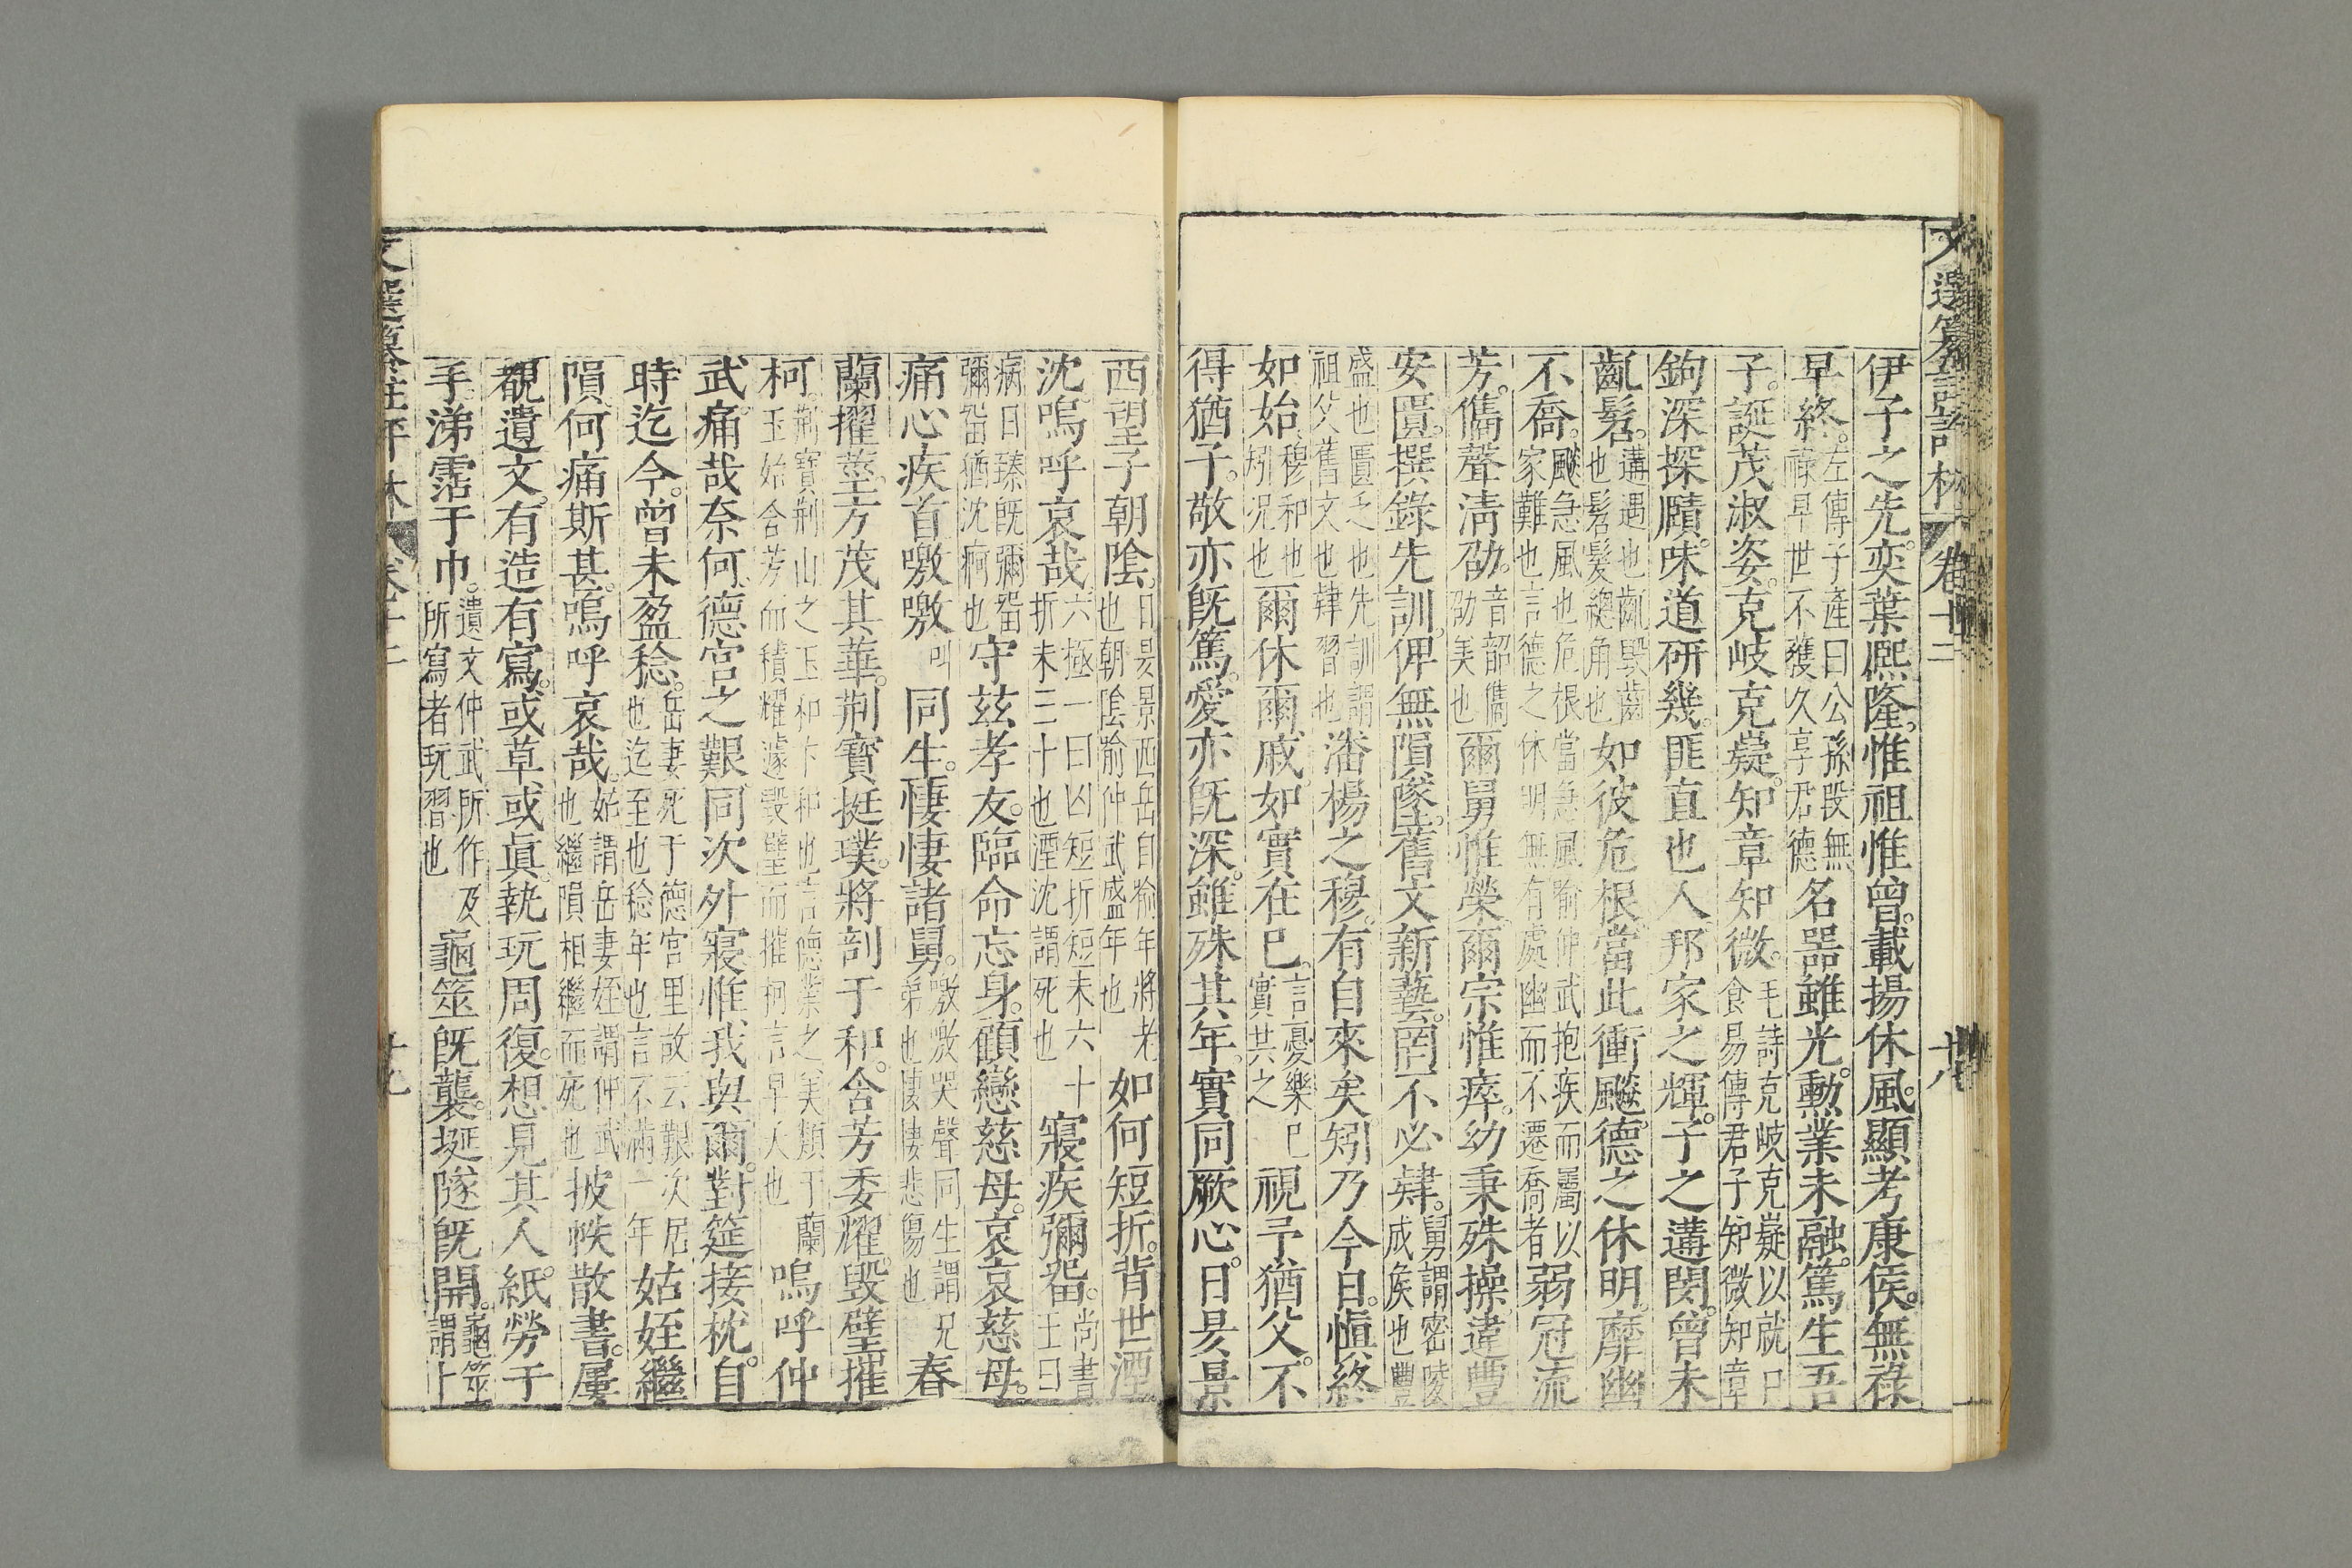 文選纂註評林 卷十二 十八
伊子之先奕葉熈隆惟祖惟曾載揚休風顯考康侯無祿
早終左傳子產曰公孫段無祿早世不獲久享君德名器雖光勳業未融篤生吾
子誕茂淑姿克岐克嶷知章知微毛詩克岐克嶷以就口食易傳君子知微知章
鉤深探賾味道研幾匪直也人邦家之輝子之遘閔曾未
齓髫遘遇也齓毀齒也髫髮緫角也如彼危根當此衝飇德之休明靡幽
不喬飇急風也危根當急風喻仲武抱疾而屬以家難也言德之休明無有處幽而不遷喬者弱冠流
芳儁聲清劭音韶儁劭美也爾舅惟榮爾宗惟瘁幼秉殊操違豐
安匱撰錄先訓俾無隕墜舊文新藝罔不必肄舅謂密陵成侯也豐
盛也匱乏也先訓謂祖父舊文也肄習也潘楊之穆有自來矣矧乃今日愼終
如始穆和也矧况也爾休爾戚如實在已言憂樂巳實共之視予猶父不
得猶子敬亦旣篤愛亦旣深雖殊其年實同厥心日昃景
西望子朝陰日昃景西岳自喻年將老也朝陰喻仲武盛年也如何短折背世湮
沈嗚呼哀哉六極一曰凶短折短未六十折未三十也湮沈謂死也寢疾彌畱尚書王曰
病日臻旣彌畱彌畱猶沈痾也守茲孝友臨命忘身顧戀慈母哀哀慈母
痛心疾首噭噭叫同生悽悽諸舅噭噭哭聲同生謂兄弟也悽悽悲傷也春
蘭擢莖方茂其華荆寳挺璞將剖于和含芳委耀毀璧摧
柯荆寳荆山之玉和卞和也言德業之美類于蘭玉始含芳而積耀遽毀璧而摧柯言早夭也嗚呼仲
武痛哉奈何德宮之艱同次外寢惟我與爾對筵接枕自
時迄今曾未盈稔岳妻死于德宮里故云艱次居也迄至也稔年也言不滿一年姑姪繼
隕何痛斯甚嗚呼哀哉姑謂岳妻姪謂仲武也繼隕相繼而死也披帙散書屢
覩遺文有造有寫或草或眞執玩周復想見其人紙勞于
手涕霑于巾遺文仲武所作及所寫者玩習也龜筮旣襲埏隧旣開龜筮謂卜
文選纂註評林 卷十二 十九